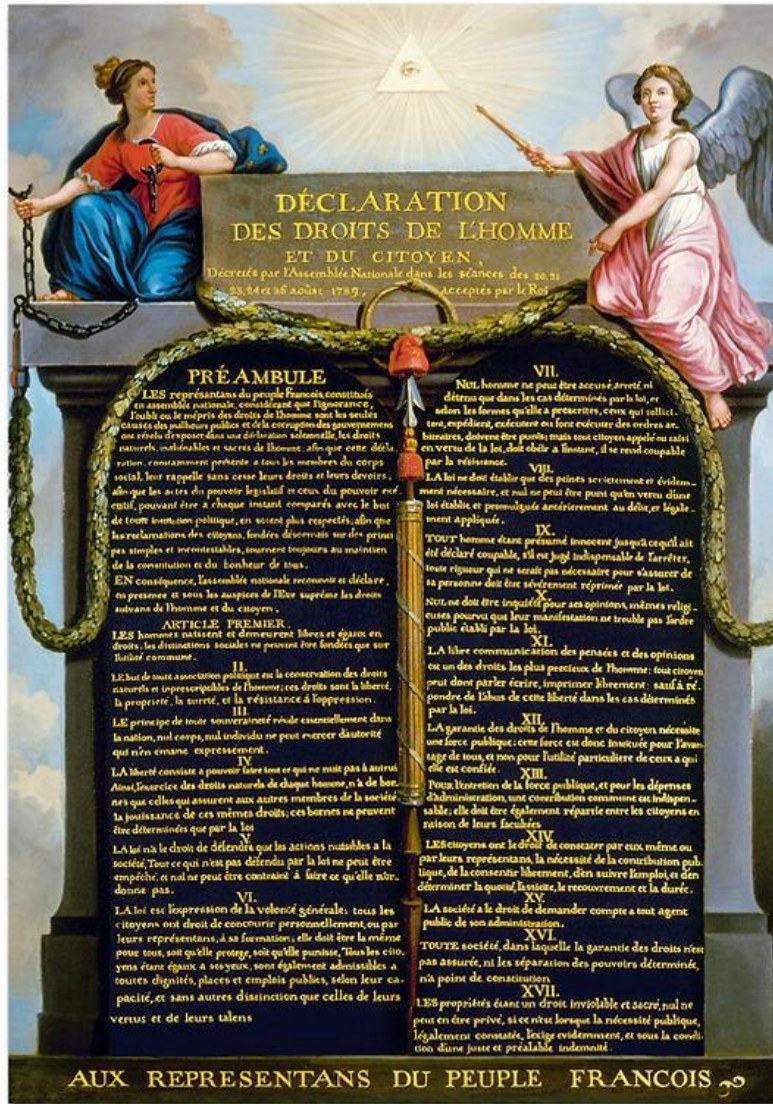 DÉCLARATION
DES DROITS DE L'HOMME
ET DU CITOYEN,
Décretés par l'Assemblée Nationale dans les séances des 20, 21
23, 24 et 26 août 1789, acceptés par le Roi
PRÉAMBULE
LES représantans du peuple Francois, constitués
en assemblée nationale, considérant que l'ignorance,
l'oubli ou le mépris des droits de l'homme sont les seules
causes des malheurs publics et de la corruption des gouvernemens
ont résolu d'exposer, dans une déclaration solemnelle, les droits
naturels, inaliénables et sacrés de l'homme; afin que cette décla-
ration, constamment présente a tous les membres du corps
social, leur rappelle sans cesse leurs droits et leurs devoirs;
afin que les actes du pouvoir legislatif et ceux du pouvoir exé-
cutif, pouvant être a chaque instant comparés avec le but
de toute institution politique, en soient plus respectés; afin que
les reclamations des citoyens, fondées désormais sur des princi-
pes simples et incontestables, tournent toujours au maintien
de la constitution et du bonheur de tous.
EN conséquence, l'assemblée nationale reconnoit et déclare,
en presence et sous les auspices de l'Etre suprême les droits
suivans de l'homme et du citoyen.
ARTICLE PREMIER.
LES hommes naissent et demeurent libres et égaux en
droits; les distinctions sociales ne peuvent être fondées que sur
l'utilité commune.
II.
LE but de toute association politique est la conservation des droits
naturels et inprescriptibles de l'homme; ces droits sont la liberté,
la propriété, la sureté, et la résistance à l'oppression.
III.
LE principe de toute souveraineté réside essentiellement dans
la nation, nul corps, nul individu ne peut exercer d'autorité
qui n'en émane expressément.
IV.
LA liberté consiste a pouvoir faire tout ce qui ne nuit pas à autrui
Ainsi, l'exercice des droits naturels de chaque homme, n'a de bor-
nes que celles qui assurent aux autres membres de la société
la jouissance de ces mêmes droits; ces bornes ne peuvent
être déterminées que par la loi
V.
LA loi n'a le droit de défendre que les actions nuisibles a la
société, Tout ce qui n'est pas défendu par la loi ne peut être
empêché, et nul ne peut être contraint à faire ce qu'elle n'or-
donne pas.
VI.
LA loi est l'expression de la volonté générale; tous les
citoyens ont droit de concourir personnellement, ou par
leurs représentans, à sa formation; elle doit être la même
pour tous, soit qu'elle protege, soit qu'elle punisse, Tous les cito-
yens étant égaux a ses yeux, sont également admissibles a
toutes dignités, places et emplois publics, selon leur ca-
pacité, et sans autres distinction que celles de leurs
vertus et de leurs talens
VII.
NUL homme ne peut être accusé, arreté, ni
détenu que dans les cas déterminés par la loi, et
selon les formes qu'elle a prescrites, ceux qui sollici-
tent, expédient, exécutent ou font exécuter des ordres ar-
bitraires, doivent être punis; mais tout citoyen appelé ou saisi
en vertu de la loi, doit obéir a l'instant, il se rend coupable
par la résistance.
VIII.
LA loi ne doit établir que des peines strictement et évidem-
ment nécessaire, et nul ne peut être puni qu'en vertu d'une
loi établie et promulguée antérierement au délit, et légale-
ment appliquée.
IX.
TOUT homme étant présumé innocent jusqu'a ce qu'il ait
été déclaré coupable, s'il est jugé indispensable de l'arrêter,
toute rigueur qui ne serait pas nécessaire pour s'assurer de
sa personne doit être sévèrement réprimée par la loi.
X.
NUL ne doit être inquiété pour ses opinions, mêmes religi-
euses pourvu que leur manifestation ne trouble pas l'ordre
public établi par la loi.
XI.
LA libre communication des pensées et des opinions
est un des droits les plus precieux de l'homme; tout citoyen
peut dont parler écrire, imprimer librement: sauf à ré-
pondre de l'abus de cette liberté dans les cas déterminés
par la loi.
XII.
LA garantie des droits de l'homme et du citoyen nécessite
une force publique; cette force est donc instituée pour l'avan-
tage de tous, et non pour l'utilité particuliere de ceux a qui
elle est confiée.
XIII.
POUR l'entretien de la force publique, et pour les dépenses
d'administration, une contribution commune est indispen-
sable; elle doit être également répartie entre les citoyens en
raison de leurs facultées
XIV.
LES citoyens ont le droit de constater par eux même ou
par leurs représentans, la nécessité de la contribution pub-
lique, de la consentir librement, d'en suivre l'emploi, et d'en
déterminer la quotité, l'assiette, le recouvrement et la durée.
XV.
LA société a le droit de demander compte a tout agent
public de son administration.
XVI.
TOUTE société, dans laquelle la garantie des droits n'est
pas assurée, ni les séparation des pouvoirs déterminée,
n'a point de constitution
XVII.
LES propriétés étant un droit inviolable et sacré, nul ne
peut en être privé, si ce n'est lorsque la nécessité publique,
légalement constatée, l'exige evidemment, et sous la condi-
tion d'une juste et préalable indemnité.
AUX REPRESENTANS DU PEUPLE FRANCOIS